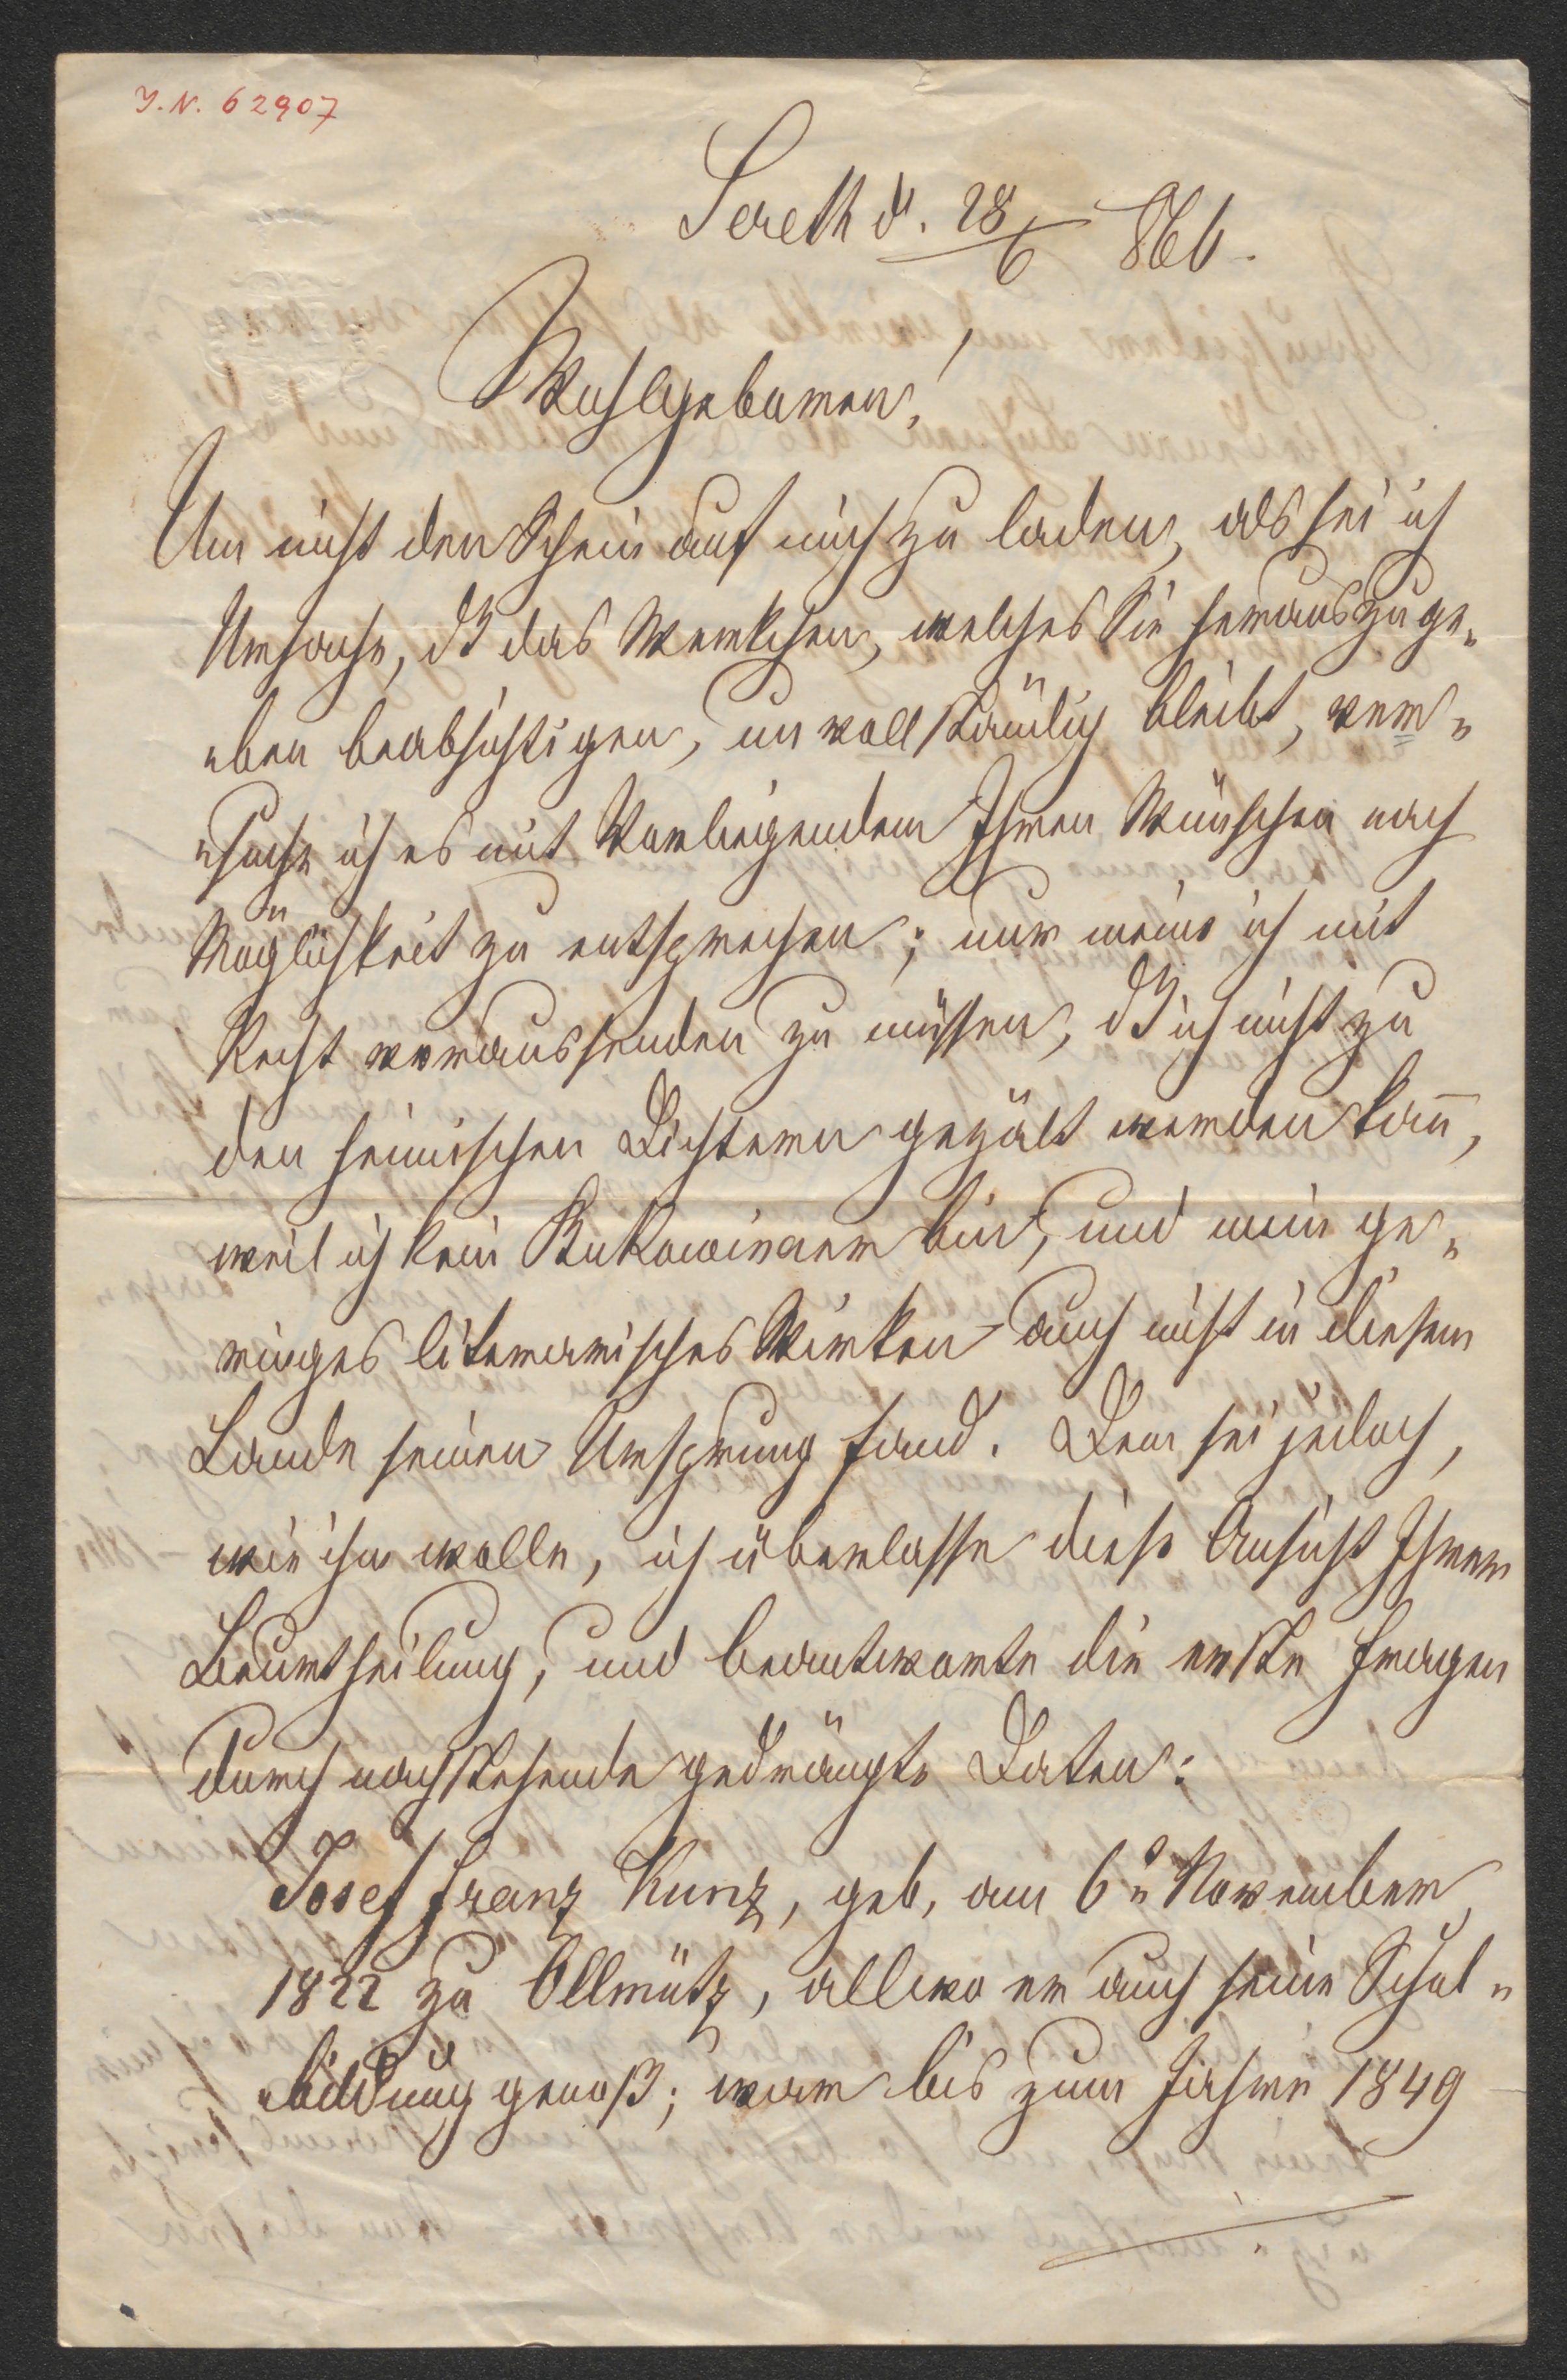 J.N. 62907
Sereth d. 28/6 866.
Wohlgeboren!
Um nicht den Schein auf mich zu laden, als sei ich
Ursache, dß das Werkchen, welches Sie herauszuge„
„ben beabsichtigen, unvollständig bleibt, ver„
„suche ich es mit Vorliegendem Ihren Wünschen nach
Möglichkeit zu entsprechen; nur meine ich mit
Recht voraussenden zu müssen, dß ich nicht zu
den heimischen Dichtern gezält werden kan̄,
weil ich kein Bukowinaer bin, und mein ge„
ringes literarisches Wirken auch nicht in diesem
Lande seinen Ursprung fand. Dem sei jedoch,
wie ihm wolle, ich überlasse diese Ansicht Ihrer
Beurtheilung, und beantworte die erste Fragen
durch nachstehende gedrängte Daten:
Josef Franz Kunz, geb, am 6n November
1822 zu Ollmütz, allwo er auch seine Schul„
„bildung genoß; war bis zum Jahre 1849